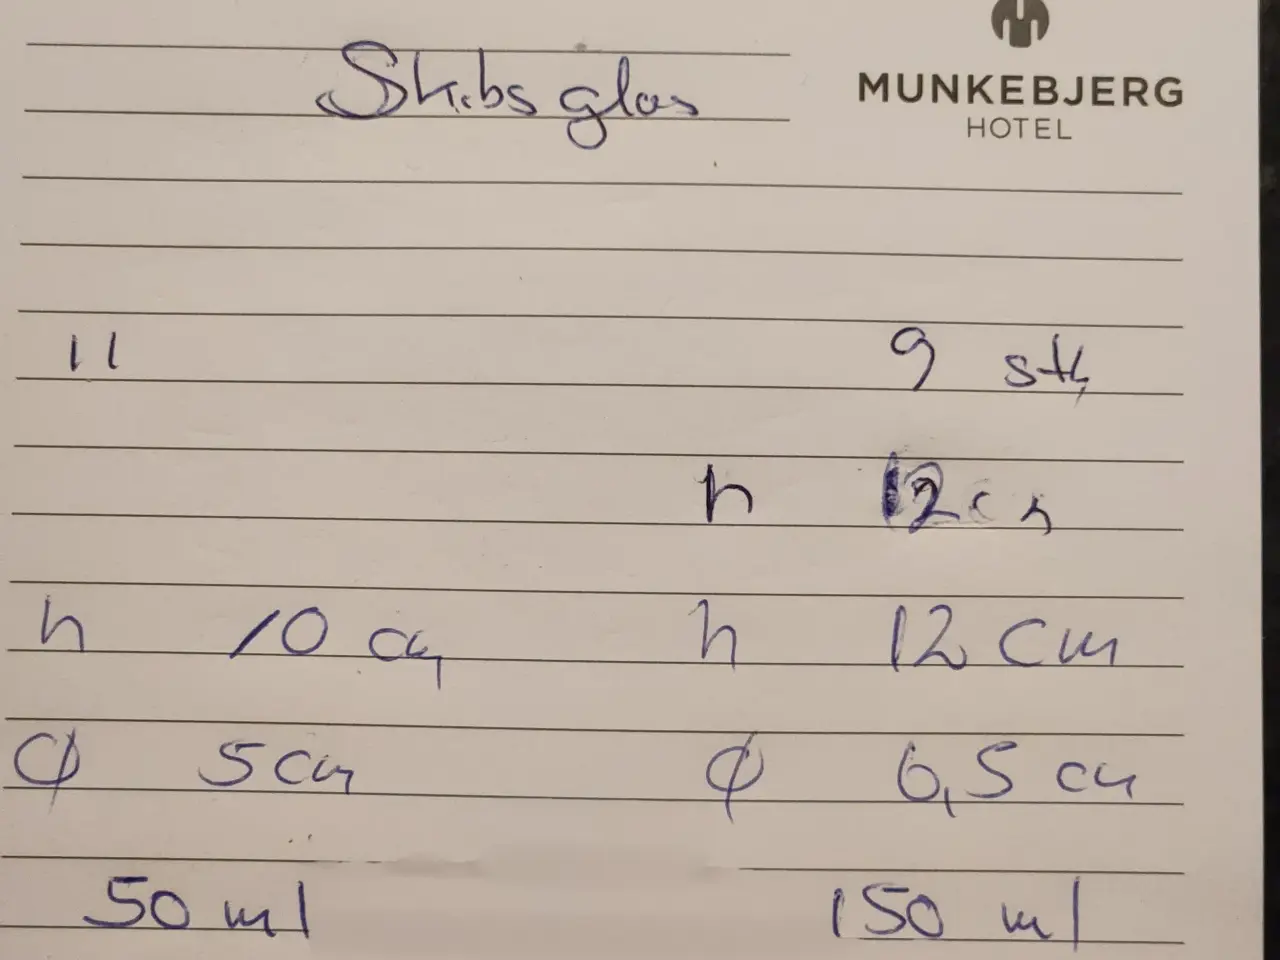 Skibsglas
MUNKEBJERG
HOTEL
11 9 stk
h 12 cm
h 10 cm h 12 cm
Ø 5 cm Ø 6,5 cm
50 ml 150 ml